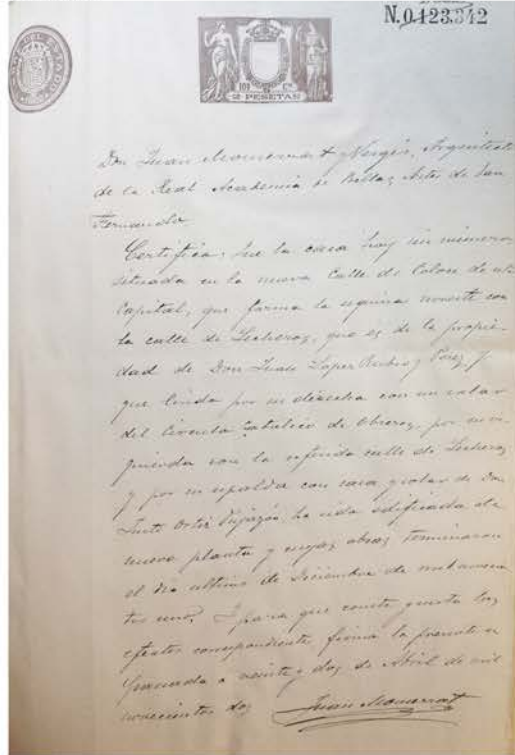 N.0.123.342
DEL ESTADO
2 PESETAS
Don Juan Monserrat y Vergés, Arquitecto
de la Real Academia de Bellas Artes de San
Fernando
Certifica: Que la casa hoy sin número
situada en la nueva Calle de Colon de esta
Capital, que forma la esquina con
la calle de Lecheros, que es de la propie-
dad de Don Juan Lopez Rubio y Perez y
que linda por su derecha con un solar
del Circulo Católico de Obreros, por su iz-
quierda con la referida calle de Lecheros
y por su espalda con casa y solar de Don
Justo Ortiz Pujazón, ha sido edificada de
nueva planta y cuyas obras terminaron
el dia ultimo de Diciembre de mil novecien
tos uno. Y para que conste y surta los
efectos correspondientes firmo la presente en
Granada a veinte y dos de Abril de mil
novecientos dos
Juan Monserrat